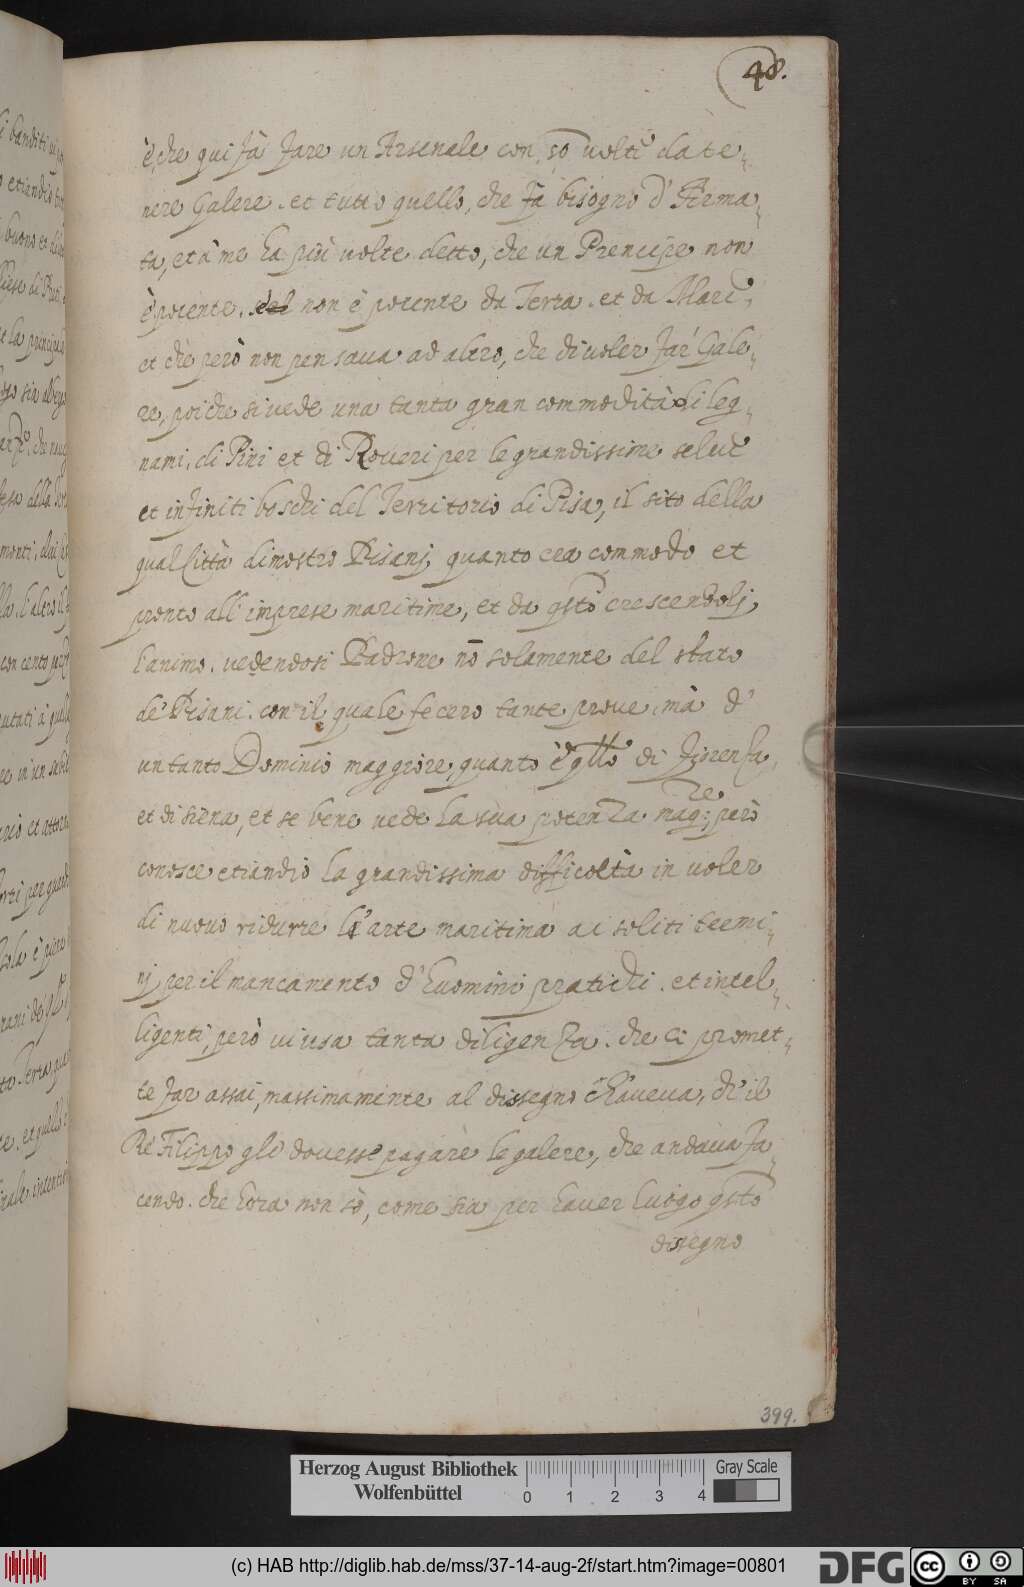 48.
è, che qui fà fare un Arsenale con 50 volti da te„
nere Galere. et tutto quello, che fà bisogno d'Arma„
ta, et à me ha più volte detto, che un Prencipe non
è potente. non è potente da Terra. et da Mare,
et che però non pensava ad altro, che di voler far Gale„
re, poiche si vede una tanta gran commodità di leg„
nami, di Pini et di Roveri per le grandissime selve
et infiniti boschi del Territorio di Pisa, il sito della
qual Città dimostro Pisani, quanto era commodo et
pronto all'imprese maritime, et da qsto crescendoli
l'animo. vedendosi Padrone nō solamente del stato
de' Pisani. con il quale fecero tante prove, mà d'
un tanto Dominio maggiore, quanto è qllo di Fiorenza,
et di siena, et se bene vede la sua potenza mag:re, però
conosce etiandio la grandissima difficoltà in voler
di nuovo ridurre l'arte maritima ai soliti termi„
nj per il mancamento d'huomini pratichi. et intel„
ligenti, però vi usa tanta diligenza. che ci promet„
te far assai, massimamente al dissegno ch'haveva, ch'il
Rè Filippo gli dovesse pagare le galere, che andava fa„
cendo. che hora non sò, come sia per haver luogo qsto
disegno
399.
Herzog August Bibliothek
Wolfenbüttel
0 1 2 3 4
Gray Scale
(c) HAB http://diglib.hab.de/mss/37-14-aug-2f/start.htm?image=00801
DFG
cc BY SA